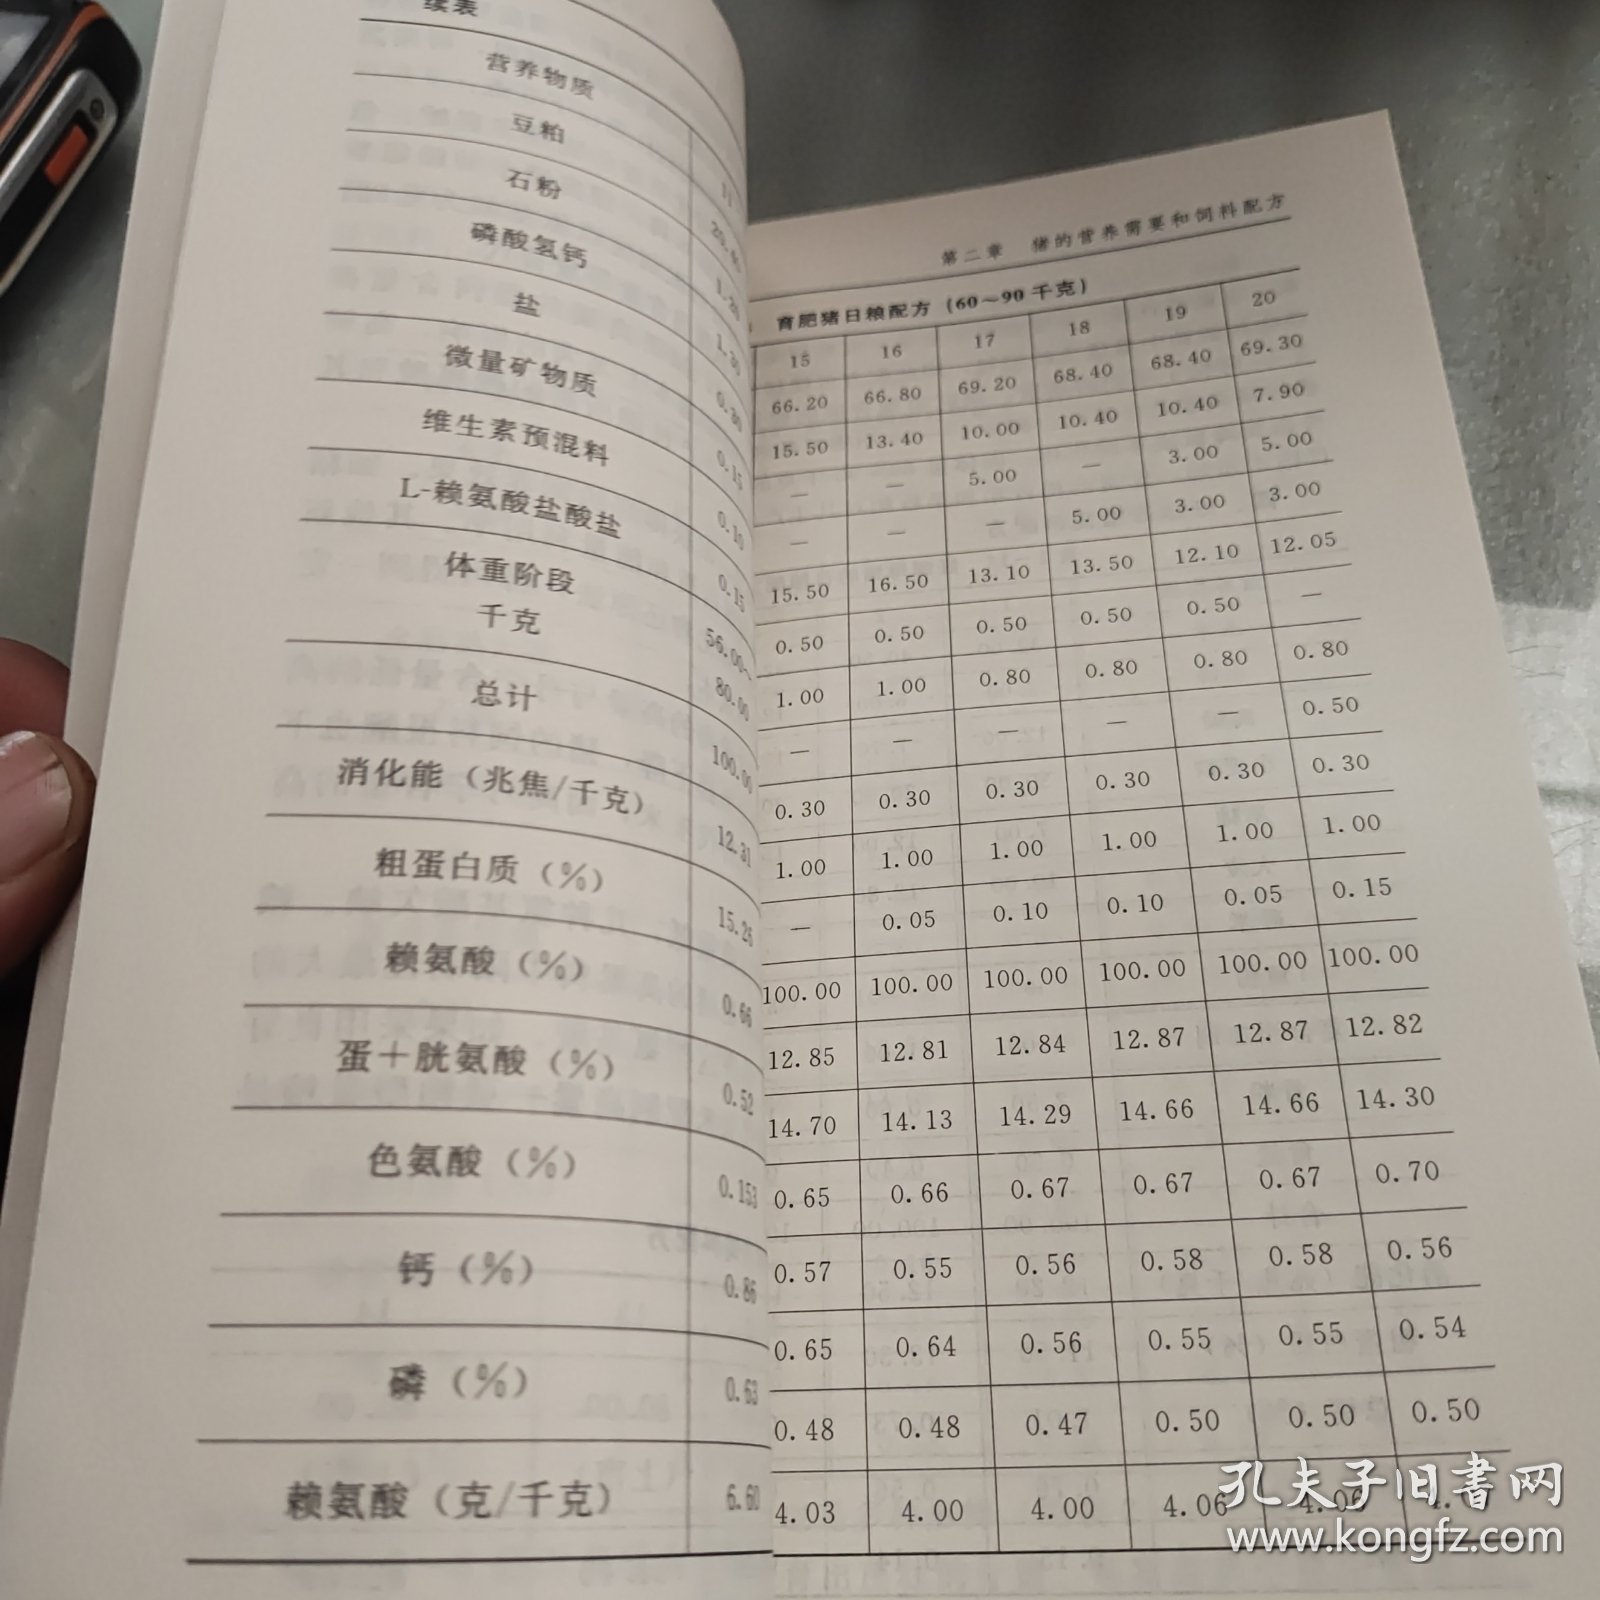 续表
营养物质
豆粕
石粉 20.40
磷酸氢钙 1.20
盐 1.30
微量矿物质 0.30
维生素预混料 0.15
L-赖氨酸盐酸盐 0.10
0.15
体重阶段
千克 56.00~
80.00
总计 100.00
消化能（兆焦/千克） 12.31
粗蛋白质（%） 15.26
赖氨酸（%） 0.66
蛋＋胱氨酸（%） 0.52
色氨酸（%） 0.153
钙（%） 0.86
磷（%） 0.63
赖氨酸（克/千克） 6.60
第二章 猪的营养需要和饲料配方
育肥猪日粮配方（60～90千克）
15 16 17 18 19 20
66.20 66.80 69.20 68.40 68.40 69.30
15.50 13.40 10.00 10.40 10.40 7.90
— — 5.00 — 3.00 5.00
— — — 5.00 3.00 3.00
15.50 16.50 13.10 13.50 12.10 12.05
0.50 0.50 0.50 0.50 0.50 —
1.00 1.00 0.80 0.80 0.80 0.80
— — — — — 0.50
0.30 0.30 0.30 0.30 0.30 0.30
1.00 1.00 1.00 1.00 1.00 1.00
— 0.05 0.10 0.10 0.05 0.15
100.00 100.00 100.00 100.00 100.00 100.00
12.85 12.81 12.84 12.87 12.87 12.82
14.70 14.13 14.29 14.66 14.66 14.30
0.65 0.66 0.67 0.67 0.67 0.70
0.57 0.55 0.56 0.58 0.58 0.56
0.65 0.64 0.56 0.55 0.55 0.54
0.48 0.48 0.47 0.50 0.50 0.50
4.03 4.00 4.00 4.06 4.06
孔夫子旧书网
www.kongfz.com